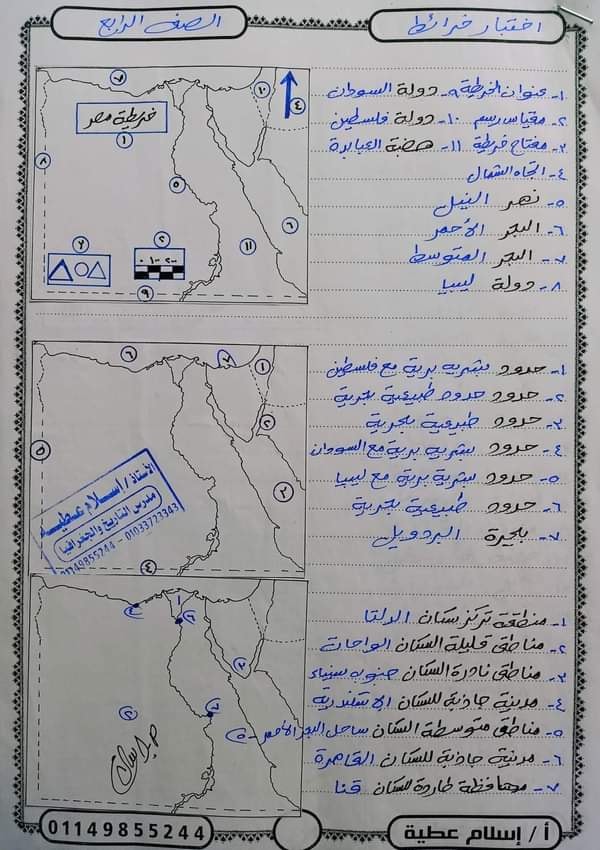 اختبار خرائط
الصف الرابع
١- عنوان الخريطة ٩- دولة السودان
٢- مقياس رسم ١٠- دولة فلسطين
٣- مفتاح خريطة ١١- هضبة العبابدة
٤- اتجاه الشمال
٥- نهر النيل
٦- البحر الأحمر
٧- البحر المتوسط
٨- دولة ليبيا
خريطة مصر
١
٢
٤
٥
٦
٧
٧
٨
٩
١٠
١١
١- حدود بشرية برية مع فلسطين
٢- حدود حدود طبيعية بحرية
٣- حدود طبيعية بحرية
٤- حدود بشرية برية مع السودان
٥- حدود بشرية برية مع ليبيا
٦- حدود طبيعية بحرية
٧- بحيرة البردويل
٦
٧
١
٢
٥
٤
الأستاذ / إسلام عطية
مدرس التاريخ والجغرافيا
01149855244 - 01033723343
١- منطقة تركز سكان الدلتا
٢- مناطق قليلة السكان الواحات
٣- مناطق نادرة السكان جنوب سيناء
٤- مدينة جاذبة للسكان الاسكندرية
٥- مناطق متوسطة السكان ساحل البحر الأحمر
٦- مدينة جاذبة للسكان القاهرة
٧- محافظة طاردة للسكان قنا
١
٦
٧
٥
01149855244
أ / إسلام عطية